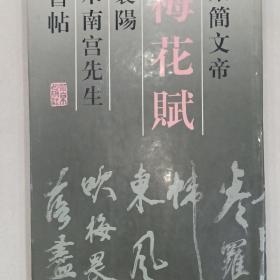 簡文帝
梅花賦
襄陽
南宫先生
帖
卷羅
東風
吹梅畏
落盡